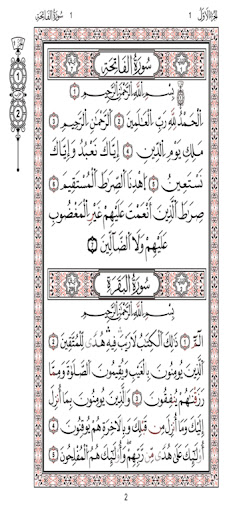 الجزء الأول 1
1 سورة الفاتحة
1
2
سُورَةُ الفَاتِحَةِ
بِسْمِ اللَّهِ الرَّحْمَٰنِ الرَّحِيمِ
الْحَمْدُ لِلَّهِ رَبِّ الْعَٰلَمِينَ الرَّحْمَٰنِ الرَّحِيمِ
مَلِكِ يَوْمِ الدِّينِ إِيَّاكَ نَعْبُدُ وَإِيَّاكَ
نَسْتَعِينُ اهْدِنَا الصِّرَٰطَ الْمُسْتَقِيمَ
صِرَٰطَ الَّذِينَ أَنْعَمْتَ عَلَيْهِمْ غَيْرِ الْمَغْضُوبِ
عَلَيْهِمْ وَلَا الضَّآلِّينَ
سُورَةُ البَقَرَةِ
بِسْمِ اللَّهِ الرَّحْمَٰنِ الرَّحِيمِ
الٓمٓ ذَٰلِكَ الْكِتَٰبُ لَا رَيْبَ فِيهِ هُدًى لِّلْمُتَّقِينَ
الَّذِينَ يُومِنُونَ بِالْغَيْبِ وَيُقِيمُونَ الصَّلَوٰةَ وَمِمَّا
رَزَقْنَٰهُمْ يُنفِقُونَ وَالَّذِينَ يُومِنُونَ بِمَا أُنزِلَ
إِلَيْكَ وَمَا أُنزِلَ مِن قَبْلِكَ وَبِالَاخِرَةِ هُمْ يُوقِنُونَ
أُوْلَٰٓئِكَ عَلَىٰ هُدًى مِّن رَّبِّهِمْ وَأُوْلَٰٓئِكَ هُمُ الْمُفْلِحُونَ
2